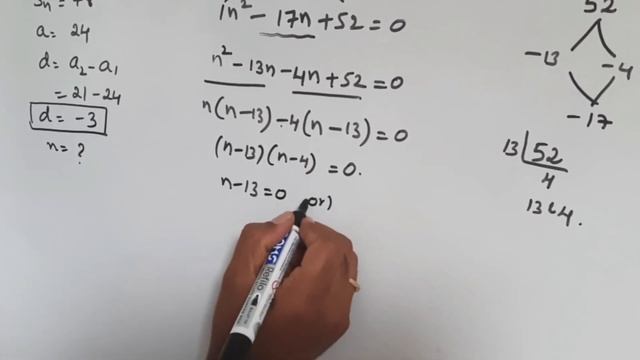 a = 24
d = a₂ - a₁
= 21 - 24
d = -3
n = ?
1n² - 17n + 52 = 0
n² - 13n - 4n + 52 = 0
n(n-13) - 4(n-13) = 0
(n-13)(n-4) = 0.
n - 13 = 0 or)
52
-13 -4
-17
13 | 52
4
13 & 4.